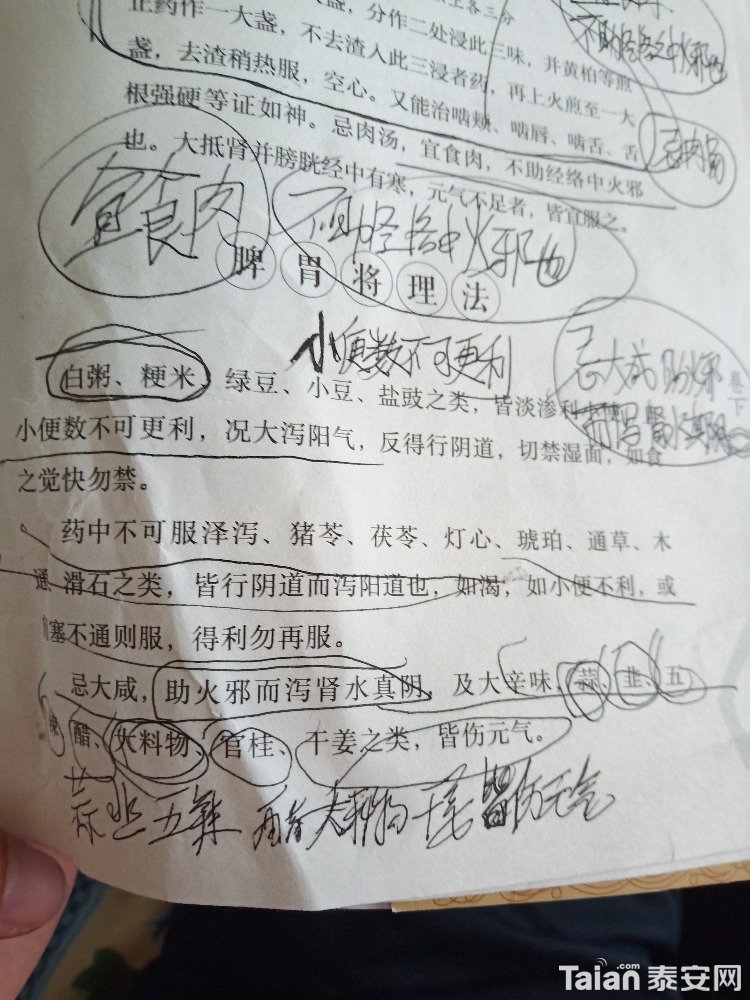 以上各三分
正药作一大盏,分作二处浸此三味,并黄柏等煎
不助经络中火邪也
盏,去渣稍热服,空心。又能治啮颊、啮唇、啮舌、舌
不去渣入此三浸者药,再上火煎至一大
根强硬等证如神。忌肉汤,宜食肉,不助经络中火邪
忌肉汤
也。大抵肾并膀胱经中有寒,元气不足者,皆宜服之。
宜食肉
不助经络中火邪也
脾胃将理法
小便数不可更利
忌大咸助火邪
而泻肾水真阴
卷下
白粥、粳米、绿豆、小豆、盐豉之类,皆淡渗利
小便数不可更利,况大泻阳气,反得行阴道,切禁湿面,如食
之觉快勿禁。
药中不可服泽泻、猪苓、茯苓、灯心、琥珀、通草、木
通、滑石之类,皆行阴道而泻阳道也,如渴,如小便不利,或
塞不通则服,得利勿再服。
忌大咸,助火邪而泻肾水真阴,及大辛味,蒜、韭、五
辣、醋、大料物、官桂、干姜之类,皆伤元气。
蒜韭五辣 大料物 皆伤元气
Taian.com 泰安网